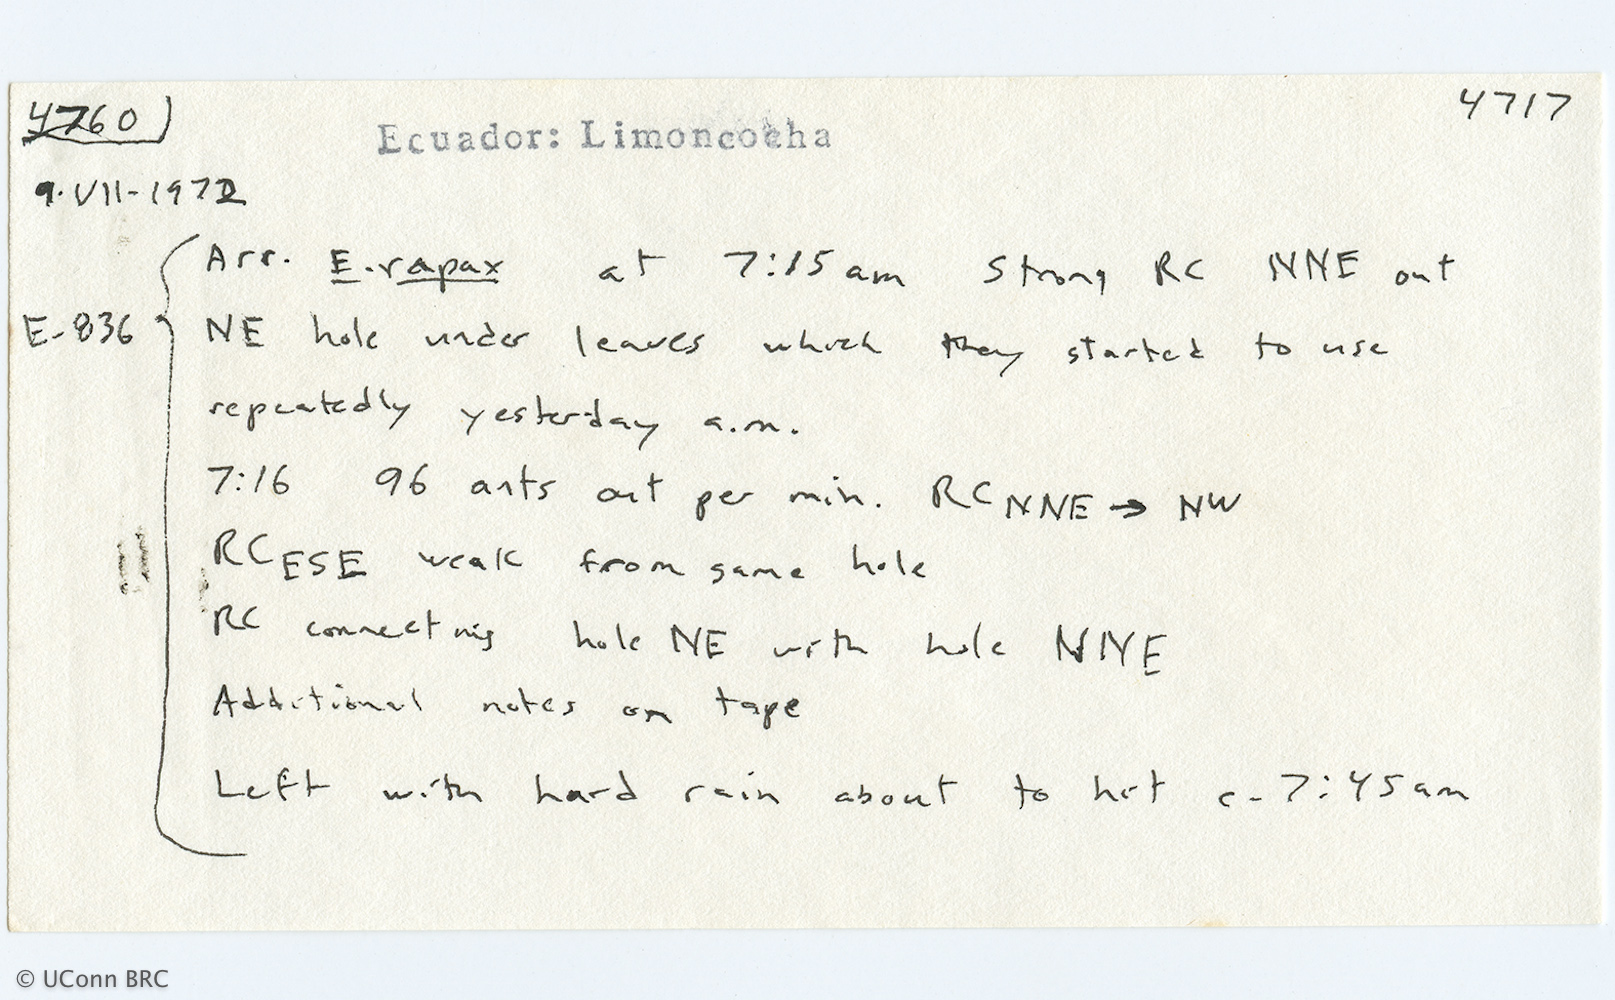 4760
4717
Ecuador: Limoncocha
9.VII-1972
Arr. E. rapax at 7:15 am Strong RC NNE out
E-836
NE hole under leaves which they started to use
repeatedly yesterday a.m.
7:16 96 ants out per min. RC NNE → NW
RC ESE weak from same hole
RC connecting hole NE with hole NNE
Additional notes on tape
Left with hard rain about to hit c. 7:45 am
© UConn BRC